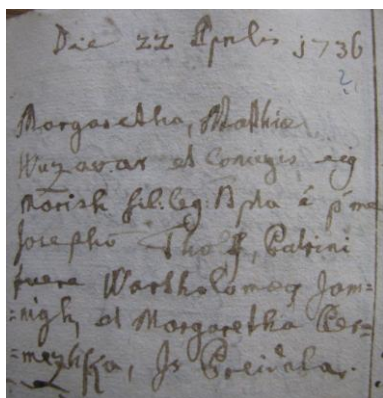 Die 22 Aprilis 1736
2.
Margaretha, Mathiæ
Wuzavar et Coniugis eig
Marish fil: leg: Bpta á p me
Josepho Tholf, Patrini
fuere Wartholomeg Jam=
=nigh, et Margaretha Ces=
=mezhka, Is